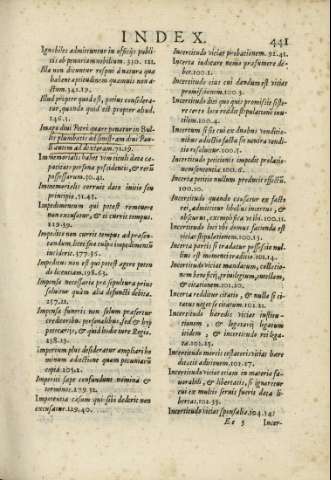 INDEX. 441
Ignobiles admittuntur in officijs publi-
cis ob penuriam nobilium. 330. 111.
Illa non dicuntur respõs à natura quæ
habent aptitudinem quamuis non a-
ctum. 341.19.
Illud propter quod est, potius considera-
tur, quàm quid est propter aliud.
146.1.
Imago diui Petri quare ponatur in Bul-
lis plumbatis ad sinistram diui Pau-
li autem ad dexteram. 71.19.
Immemorialis habet vim tituli data ca-
pacitate personæ possidentis, & rerum
possessarum. 50.41.
Immemorialis corruit dato initio seu
principio. 51.43.
Impedimentum qui potest remouere
non excusatur, & ei currit tempus.
129.39.
Impedito non currit tempus ad præscri-
bendum, licet sua culpa impedimentũ
inciderit. 377.56.
Impediens non est qui potest agere peten-
do licentiam. 198.63.
Impensa necessaria pro sepultura prius
soluitur quàm alia defuncti debita.
257.21.
Impensa funeris non solum præfertur
creditoribus personalibus, sed & hy-
potecarijs, & quid hodie iure Regio.
258.23.
Imperium plus desideratur ampliari ho
minum adiectione quàm pecuniarũ
copia. 105.2.
Imperiti sæpe confundunt nomina &
terminos. 129.32.
Impotentia casum qui sibi dederit non
excusatur. 129.40.
Incertitudo vitiat probationem. 92.41.
Incerta iudicare nemo præsumere de-
bet. 100.1.
Incertitudo eius cui dandum est vitiat
promissionem. 100.3.
Incertitudo diei quo quis promissit siste-
re certo loco reddit stipulationem inu-
tilem. 100.4.
Incertum si sit cui ex duobus venditio-
nibus adiectio facta sit in neutra vendi-
tione valebit. 100.5.
Incertitudo petitionis impedit prolatio-
nem sententiæ. 100.6.
Incerta petitio nullum producit effectũ.
100.10.
Incertitudo quando causatur ex facto
rei, admittitur libellus incertus, &
obscurus, exemplifica vt ibi. 100.11.
Incertitudo loci vbi domus facienda est
vitiat stipulationem. 100.13.
Incerta partis si tradatur possessio nul-
lius est momenti traditio. 101.14.
Incertitudo vitiat mandatum, collatio-
nem beneficij, priuilegium, muletam,
& citationem. 101.20.
Incerta redditur citatio, & nulla si ci-
tatus neget se citatum. 101.21.
Incertitudo heredis vitiat institu-
tionem, & legatarij legatum
itidem, & incertitudo rei lega-
tæ. 101.25.
Incertitudo mortis testatoris vitiat hære
ditatis aditionem. 101.17.
Incertitudo vitiat etiam in materia fa-
uorabili, & libertatis, si ignoratur
cui ex multis seruis fuerit data li-
bertas. 102.39.
Incertitudo vitiat sponsalia. 104.141
Ee 5 Incer-